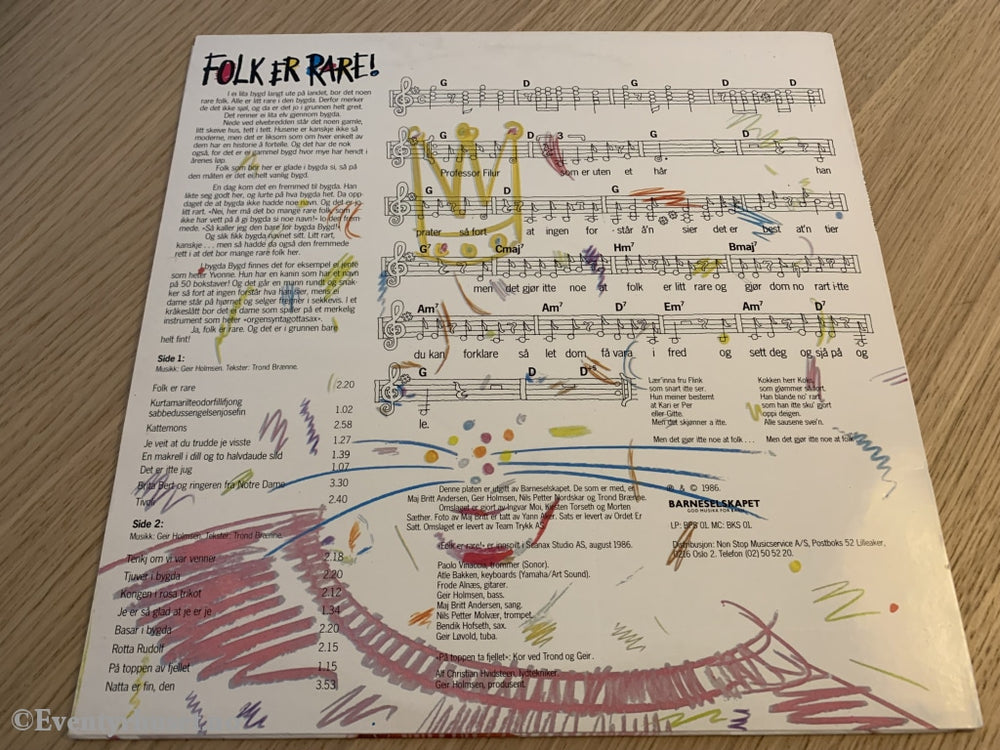 FOLK ER RARE!
I ei lita bygd langt ute på landet, bor det noen
rare folk. Alle er litt rare i den bygda. Derfor merker
de det ikke sjøl, og da er det jo i grunnen helt greit.
Det renner ei lita elv gjennom bygda.
Nede ved elvebredden står det noen gamle,
litt skeive hus, tett i tett. Husene er kanskje ikke så
moderne, men det er liksom som om hver enkelt av
dem har en historie å fortelle. Og det har de nok
også, for det er ei gammel bygd hvor mye har hendt i
årenes løp.
Folk som bor her er glade i bygda si, så på
den måten er det ei helt vanlig bygd.
En dag kom det en fremmed til bygda. Han
likte seg godt her, og lurte på hva bygda het. Da opp-
daget de at bygda ikke hadde noe navn. Og det er
litt rart. «Nei, her må det bo mange rare folk som
ikke har vett på å gi bygda si noe navn!» lo den frem-
mede. «Så kaller jeg den bare for bygda Bygd!»
Og slik fikk bygda navnet sitt. Litt rart,
kanskje . . . men så hadde da også den fremmede
rett i at det bor mange rare folk her.
I bygda Bygd finnes det for eksempel ei jente
som heter Yvonne. Hun har en kanin som har et navn
på 50 bokstaver! Og det går en mann rundt og snak-
ker så fort at ingen forstår hva han sier, mens ei
dame står på hjørnet og selger fregner i sekkevis. I et
kråkeslått bor det ei dame som spiller på et merkelig
instrument som heter «orgensyntagottasax».
Ja, folk er rare. Og det er i grunnen bare
helt fint!
Side 1:
Musikk: Geir Holmsen. Tekster: Trond Brænne.
Folk er rare 2.20
Kurtamarilteodorfillifjong
sabbedussengelsenjosefin 1.02
Kattemons 2.58
Je veit at du trudde je visste 1.27
En makrell i dill og to halvdaude sild 1.39
Det er itte jug 1.07
Brita Bert og ringeren fra Notre Dame 3.30
Tivoli 2.40
Side 2:
Musikk: Geir Holmsen. Tekster: Trond Brænne.
Tenkj om vi var venner 2.18
Tjuver i bygda 2.20
Kongen i rosa trikot 2.12
Je er så glad at je er je 1.34
Basar i bygda 2.20
Rotta Rudolf 2.15
På toppen av fjellet 1.15
Natta er fin, den 3.53
G D G D D
G D 3 G D
Professor Filur som er uten et hår han
G D G
prater så fort at ingen for - står å'n sier det er best at'n tier
G7 Cmaj7 Hm7 Bmaj7
men det gjør itte noe at folk er litt rare og gjør dom no rart i-tte
Am7 Am7 D7 Em7 Am7 D7
du kan forklare så let dom få vara i fred og sett deg og sjå på og
G D D+5
le.
Lær'inna fru Flink
som snart itte ser.
Hun meiner bestemt
at Kari er Per
eller Gitte.
Men det skjønner a itte.
Men det gjør itte noe at folk . . .
Kokken herr Koks,
som glømmer så fort.
Han blande no' rart
som han itte sku' gjort
oppi deigen.
Alle sausene svei'n.
Men det gjør itte noe at folk . . .
Denne platen er utgitt av Barneselskapet. De som er med, er
Maj Britt Andersen, Geir Holmsen, Nils Petter Nordskar og Trond Brænne.
Omslaget er gjort av Ingvar Moi, Kirsten Torseth og Morten
Sæther. Foto av Maj Britt er tatt av Yann Aker. Sats er levert av Ordet Er
Satt. Omslaget er levert av Team Trykk AS.
«Folk er rare!» er innspilt i Seanax Studio AS, august 1986.
Paolo Vinaccia, trommer (Sonor).
Atle Bakken, keyboards (Yamaha/Art Sound).
Frode Alnæs, gitarer.
Geir Holmsen, bass.
Maj Britt Andersen, sang.
Nils Petter Molvær, trompet.
Bendik Hofseth, sax.
Geir Løvold, tuba.
«På toppen ta fjellet»: Kor ved Trond og Geir.
Alf Christian Hvidsteen, lydtekniker.
Geir Holmsen, produsent.
℗ & © 1986.
BARNESELSKAPET
GOD MUSIKK FOR BARN
LP: BPS 01 MC: BKS 01
Distribusjon: Non Stop Musicservice A/S, Postboks 52 Lilleaker,
0216 Oslo 2. Telefon (02) 50 52 20.